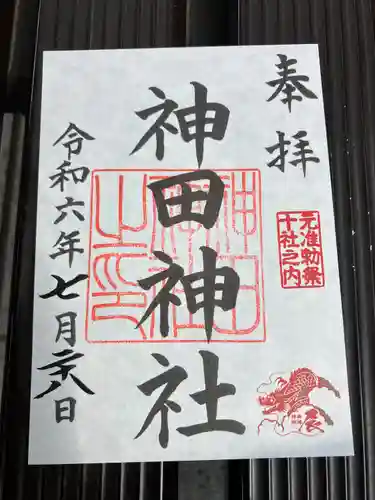 奉拝
元准勅祭
十社之内
神田神社
令和六年七月二十八日
辰